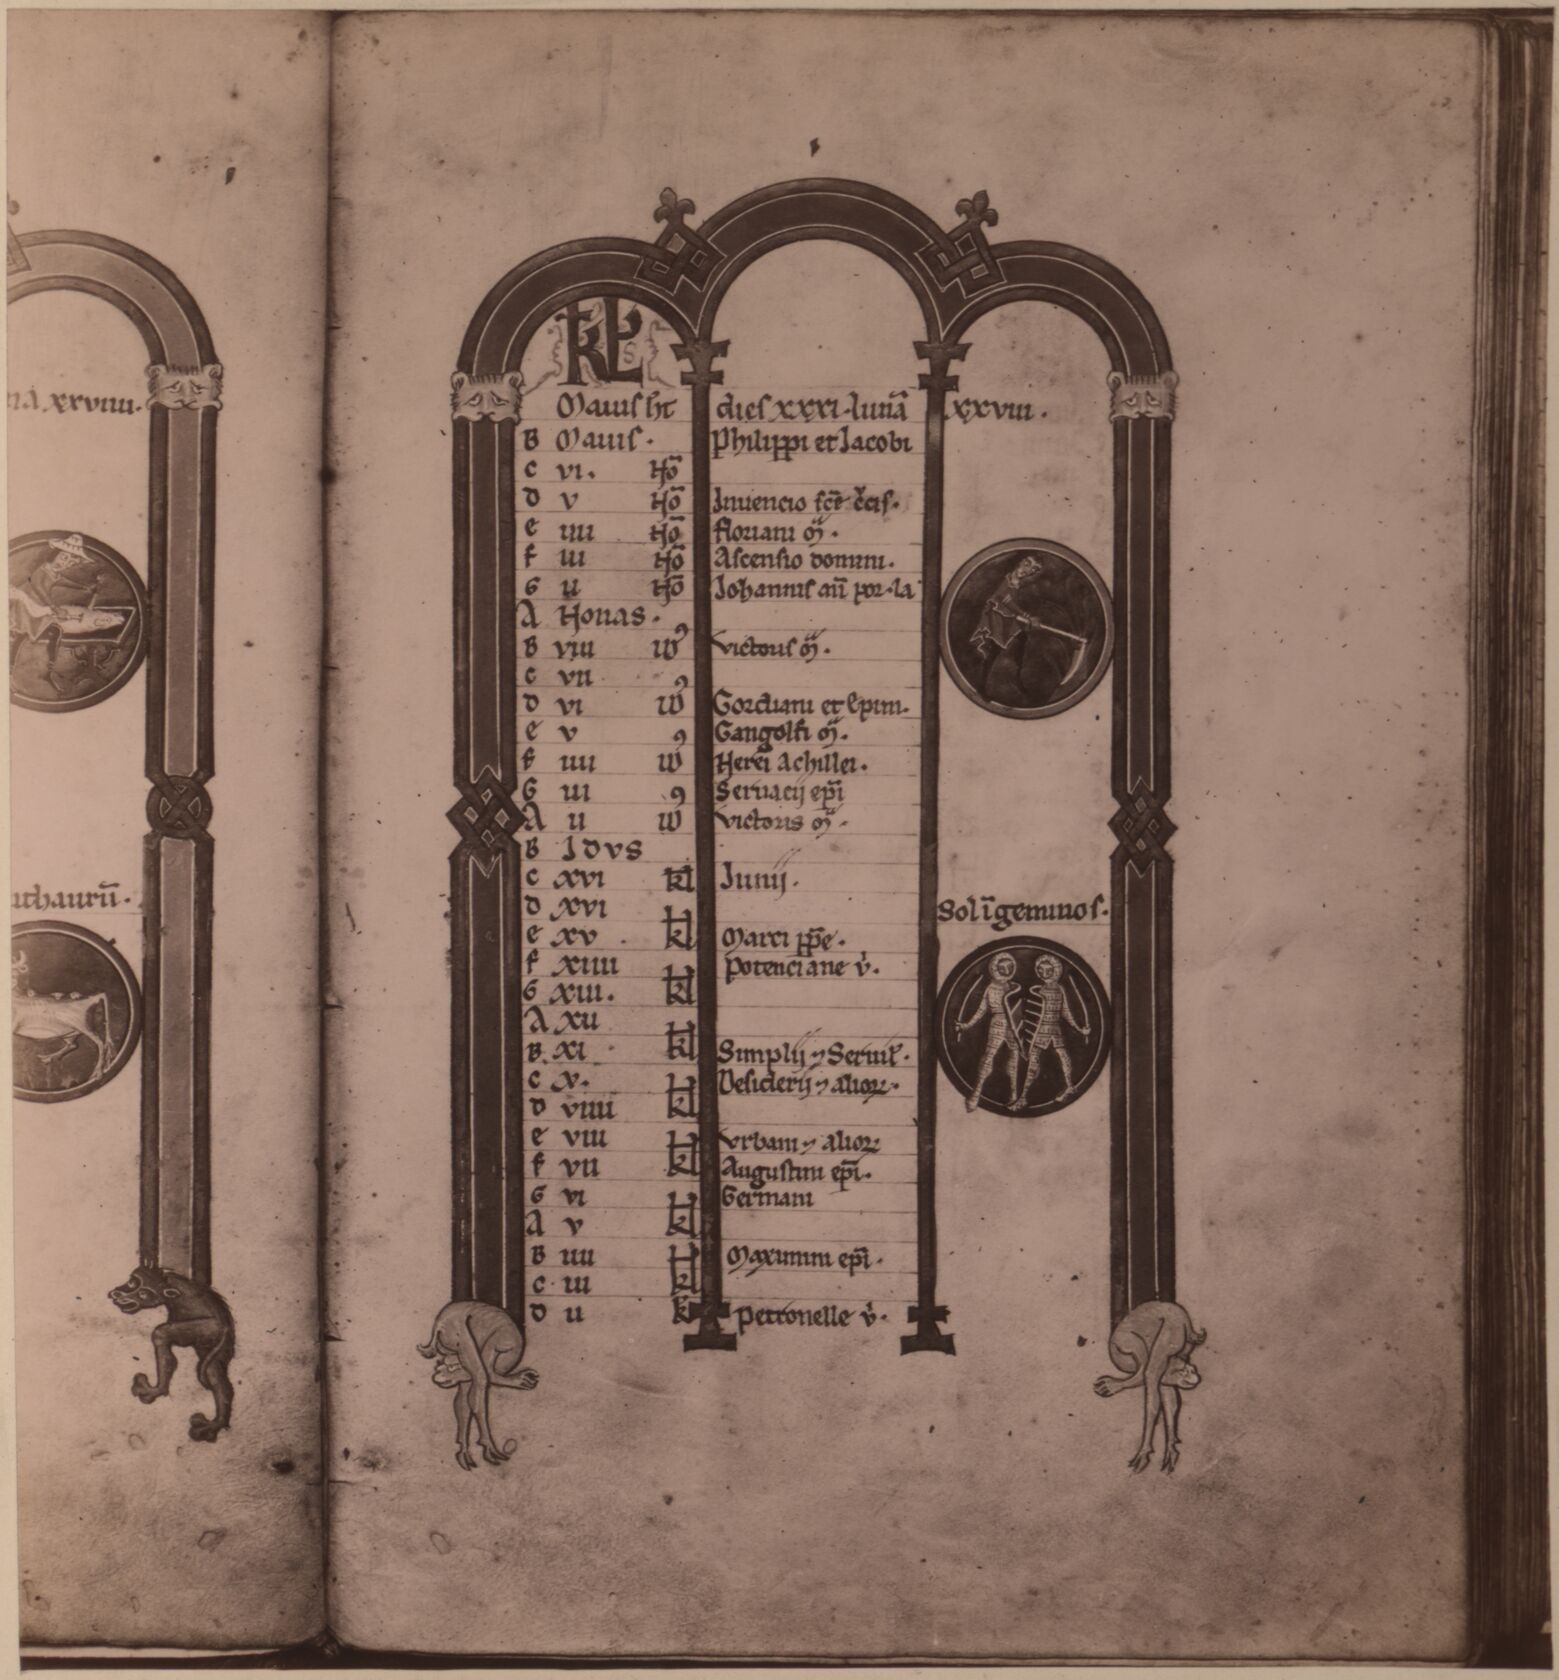 na xxviiii.
uthaurū.
KL
Maius ht dies xxxi. lunā xxviii.
B Maius. Philippi et Jacobi
c vi. Nō
d v Nō Inuencio scē c̄cis.
e iiii Nō floriani m̄.
f iii Nō Ascensio domini.
G ii Nō Johannis an̄ por. la
A Nonas.
B viii id Victoris m̄.
c vii
d vi id Gordiani et Epim.
e v Gangolfi m̄.
f iiii id Nerei Achillei.
G iii Seruacij epī
A ii id Victoris m̄.
B Idvs
c xvi kl Junij.
d xvi
e xv. kl Marci pp̄e.
f xiiii Potenciane v̄.
G xiii. kl
A xii
B. xi kl Simplij ⁊ Seruil.
c x. Desiderij ⁊ alioꝝ.
d viiii kl
e viii Vrbani ⁊ alioꝝ
f vii kl Augustini epī.
G vi Germani
A v kl
B iiii Maximini epī.
c. iii kl
d ii k Petronelle v̄.
Sol ī geminos.